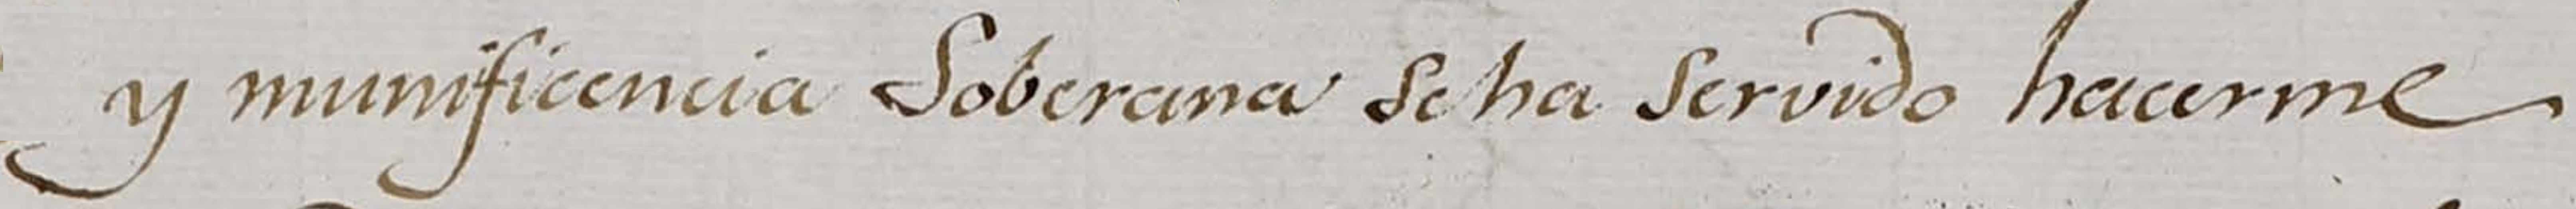 y munificencia Soberana se ha servido hacerme